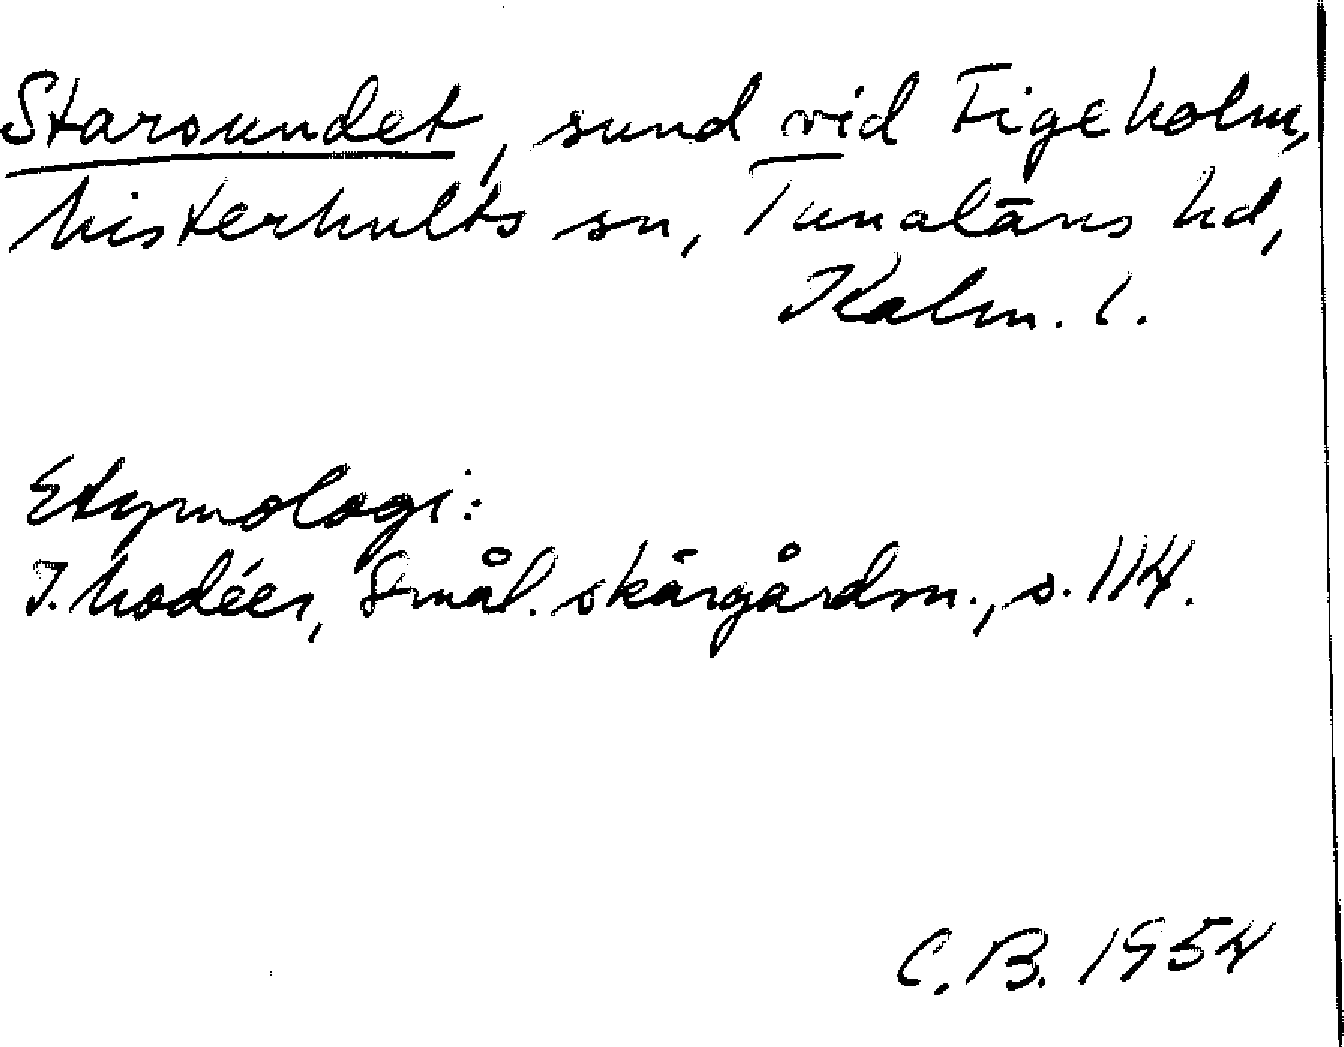 Starsundet, sund vid Figeholm,
Misterhults sn, Tunaläns hd,
Kalm. l.
Etymologi:
I. Modéer, Smål. skärgårdsn., s. 114.
C. B. 1954